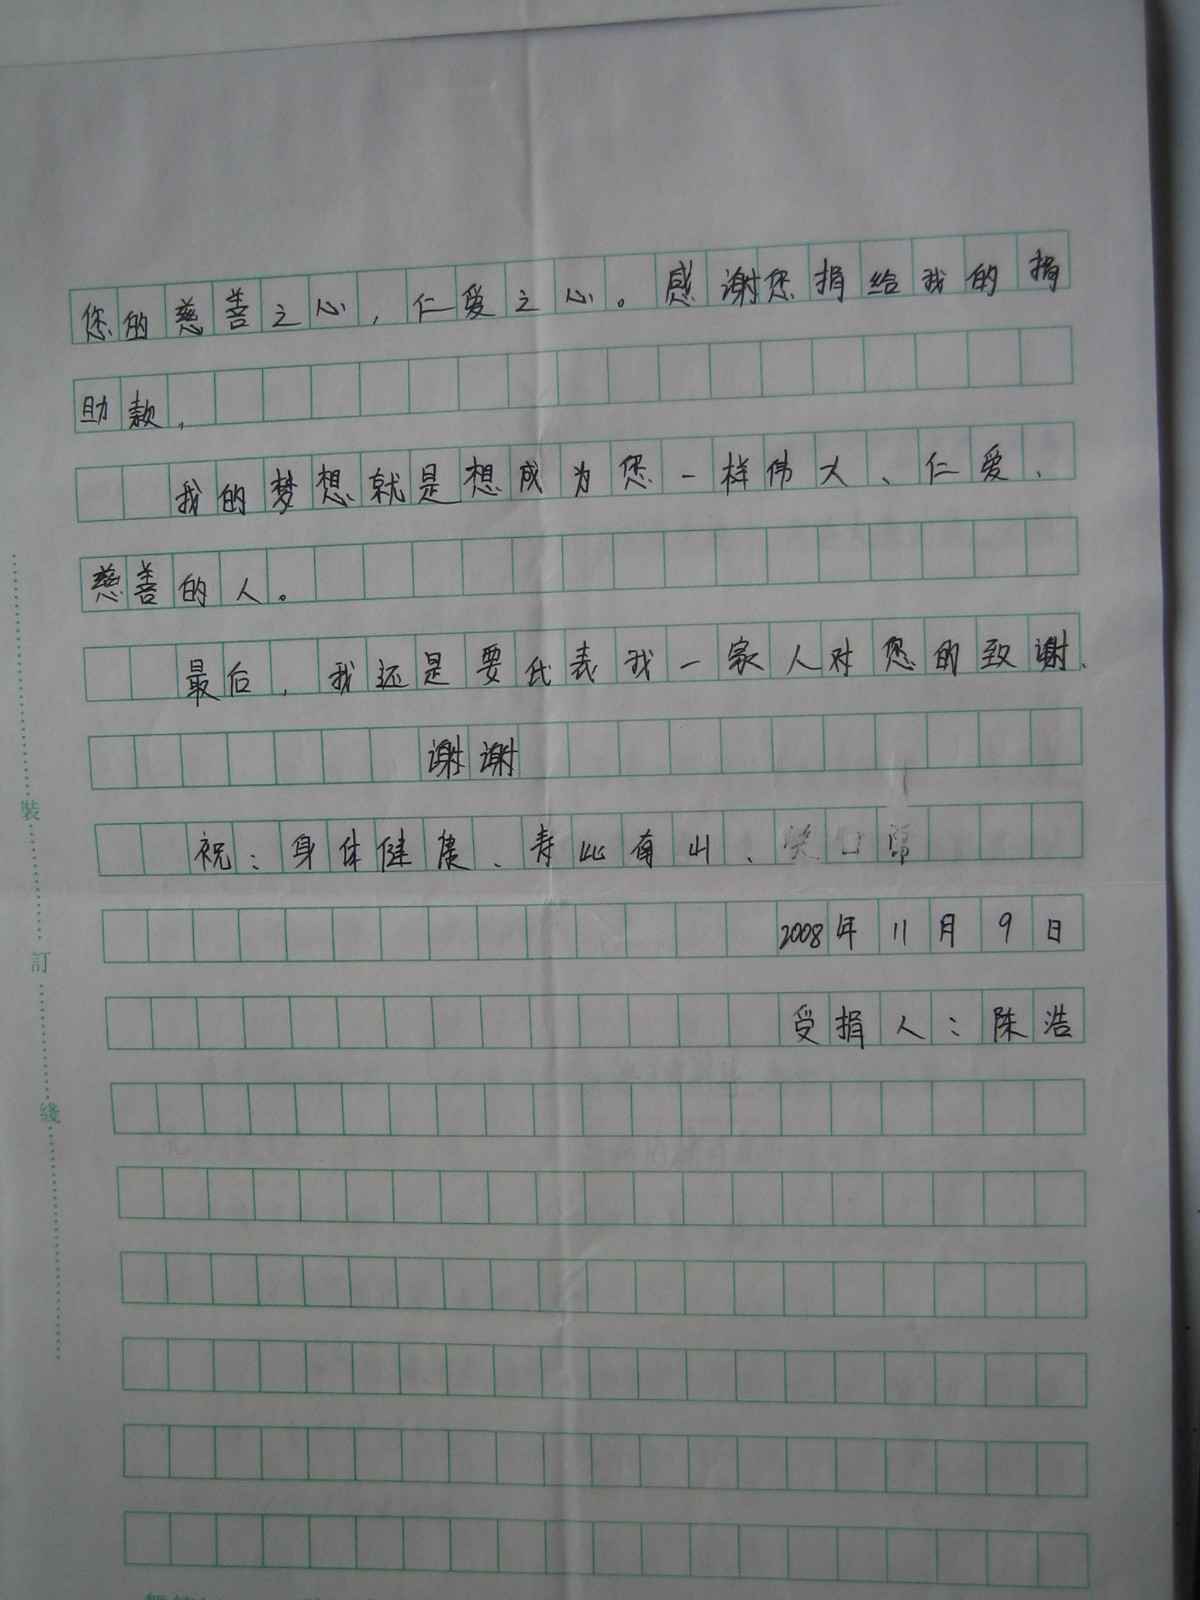 您的慈善之心，仁爱之心。感谢您捐给我的捐
助款，
我的梦想就是想成为您一样伟大、仁爱、
慈善的人。
最后，我还是要代表我一家人对您的致谢、
谢谢
祝：身体健康、寿比南山、笑口
2008年11月9日
受捐人：陈浩
裝
訂
綫